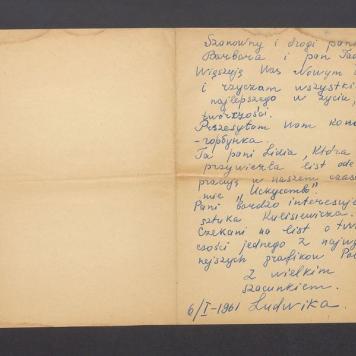 Szanowny i drogi pani
Barbara i pan Tad
Winszuję Was Nowym
i rzyczam wszystki
najlepszego w życiu,
tworczości.
Przesyłam Wam kon
Ta pani Lidia, która
przywiezla list ode
pracują w naszem czaso
nie
Pani bardzo interesuję
sztuka Kulisiewicza.
Czekani na list o twór
czości jednego z najwy
nejszych grafikow Pol
z wielkim
szacunkiem.
6/I-1961 Ludwika.